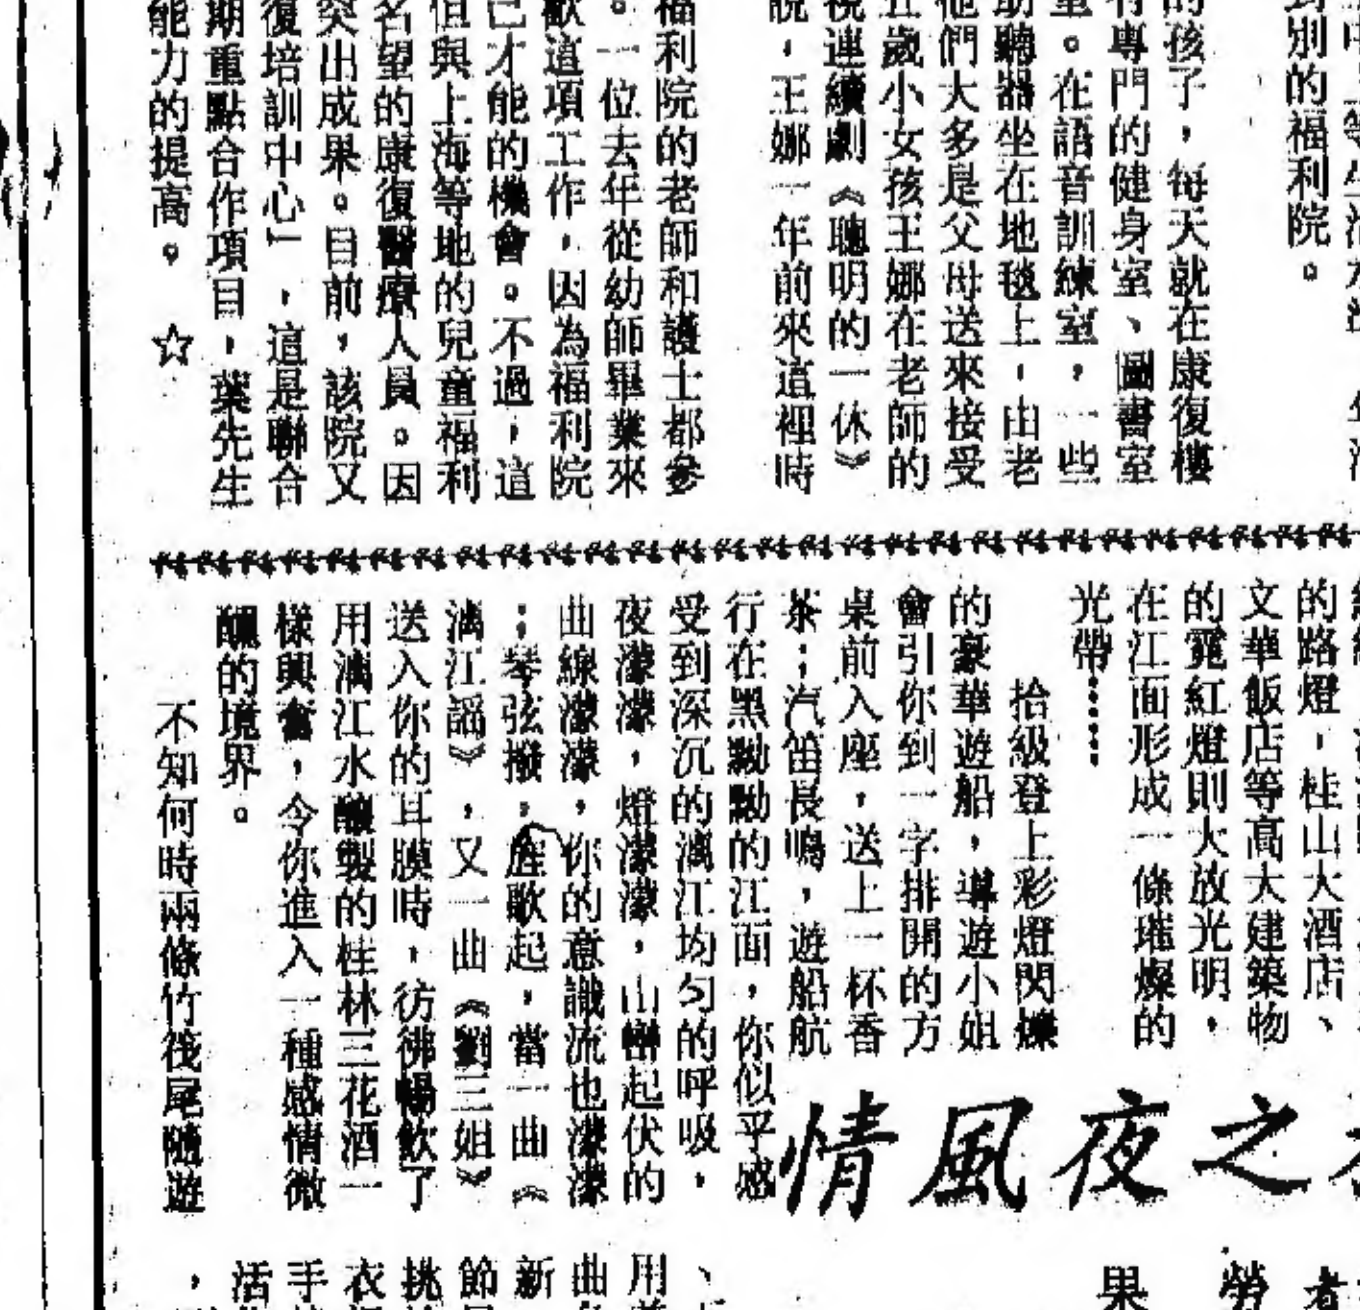 到別的福利院。
的孩子，每天就在康復樓
有專門的健身室、圖書室
。在語音訓練室，一些
助聽器坐在地毯上，由老
他們大多是父母送來接受
五歲小女孩王娜在老師的
視連續劇《聰明的一休》
說，王娜一年前來這裡時
福利院的老師和護士都參
。一位去年從幼師畢業來
歡這項工作，因為福利院
己才能的機會。不過，這
但與上海等地的兒童福利
名望的康復醫療人員。因
突出成果。目前，該院又
復培訓中心」，這是聯合
期重點合作項目，葉先生
能力的提高。 ☆
的路燈，桂山大酒店、
文華飯店等高大建築物
的霓紅燈則大放光明，
在江面形成一條璀燦的
光帶……
拾級登上彩燈閃爍
的豪華遊船，導遊小姐
會引你到一字排開的方
桌前入座，送上一杯香
茶；汽笛長鳴，遊船航
行在黑黝黝的江面，你似乎感
受到深沉的漓江均勻的呼吸，
夜濛濛，燈濛濛，山巒起伏的
曲線濛濛，你的意識流也濛濛
；琴弦撥，歌起，當一曲《
漓江謠》，又一曲《劉三姐》
送入你的耳膜時，彷彿暢飲了
用漓江水釀製的桂林三花酒一
樣興奮，令你進入一種感情微
醺的境界。
不知何時兩條竹筏尾隨遊
之夜風情
勞
果
用
曲
新
節
挑
衣
手
活
，